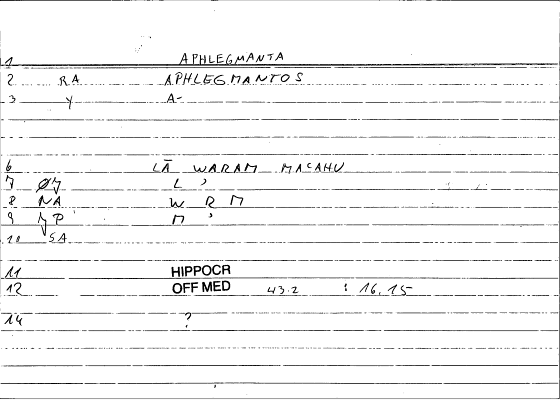 1 APHLEGMANTA
2 RA APHLEGMANTOS
3 Y A-
6 LĀ WARAM MAʿAHU
7 ØY L ʾ
8 NA W R M
9 YP M ʾ
10 SA
11 HIPPOCR
12 OFF MED 43.2 : 16,15
14 ?